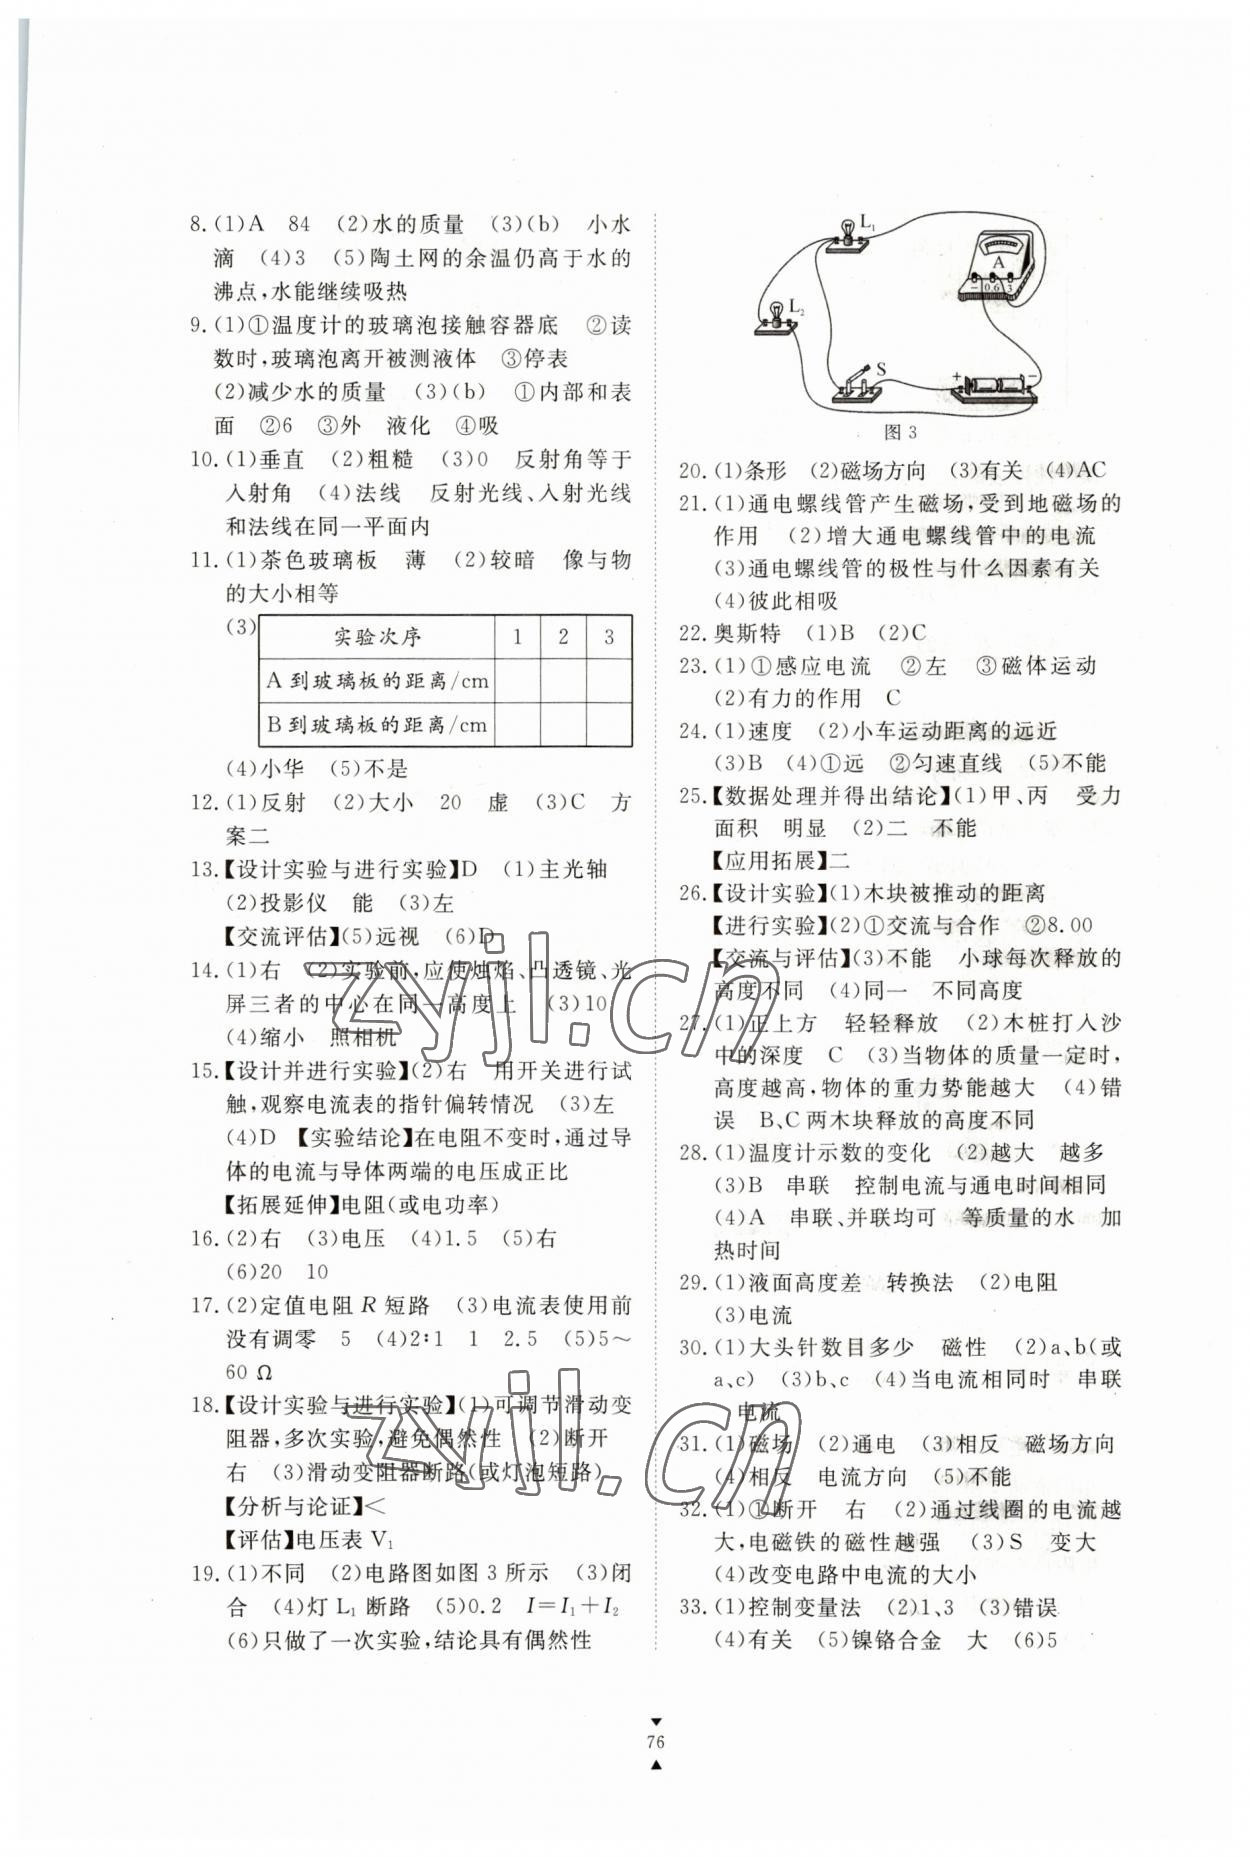 8.(1)A 84 (2)水的质量 (3)(b) 小水
滴 (4)3 (5)陶土网的余温仍高于水的
沸点,水能继续吸热
9.(1)①温度计的玻璃泡接触容器底 ②读
数时,玻璃泡离开被测液体 ③停表
(2)减少水的质量 (3)(b) ①内部和表
面 ②6 ③外 液化 ④吸
10.(1)垂直 (2)粗糙 (3)0 反射角等于
入射角 (4)法线 反射光线、入射光线
和法线在同一平面内
11.(1)茶色玻璃板 薄 (2)较暗 像与物
的大小相等
(3)
实验次序 1 2 3
A到玻璃板的距离/cm
B到玻璃板的距离/cm
(4)小华 (5)不是
12.(1)反射 (2)大小 20 虚 (3)C 方
案二
13.【设计实验与进行实验】D (1)主光轴
(2)投影仪 能 (3)左
【交流评估】(5)远视 (6)D
14.(1)右 (2)实验前,应使烛焰、凸透镜、光
屏三者的中心在同一高度上 (3)10
(4)缩小 照相机
15.【设计并进行实验】(2)右 用开关进行试
触,观察电流表的指针偏转情况 (3)左
(4)D 【实验结论】在电阻不变时,通过导
体的电流与导体两端的电压成正比
【拓展延伸】电阻(或电功率)
16.(2)右 (3)电压 (4)1.5 (5)右
(6)20 10
17.(2)定值电阻R短路 (3)电流表使用前
没有调零 5 (4)2∶1 1 2.5 (5)5~
60 Ω
18.【设计实验与进行实验】(1)可调节滑动变
阻器,多次实验,避免偶然性 (2)断开
右 (3)滑动变阻器断路(或灯泡短路)
【分析与论证】<
【评估】电压表V₁
19.(1)不同 (2)电路图如图3所示 (3)闭
合 (4)灯L₁断路 (5)0.2 I=I₁+I₂
(6)只做了一次实验,结论具有偶然性
L₁
A
- 0.6 3
L₂
S
+ -
图3
20.(1)条形 (2)磁场方向 (3)有关 (4)AC
21.(1)通电螺线管产生磁场,受到地磁场的
作用 (2)增大通电螺线管中的电流
(3)通电螺线管的极性与什么因素有关
(4)彼此相吸
22.奥斯特 (1)B (2)C
23.(1)①感应电流 ②左 ③磁体运动
(2)有力的作用 C
24.(1)速度 (2)小车运动距离的远近
(3)B (4)①远 ②匀速直线 (5)不能
25.【数据处理并得出结论】(1)甲、丙 受力
面积 明显 (2)二 不能
【应用拓展】二
26.【设计实验】(1)木块被推动的距离
【进行实验】(2)①交流与合作 ②8.00
【交流与评估】(3)不能 小球每次释放的
高度不同 (4)同一 不同高度
27.(1)正上方 轻轻释放 (2)木桩打入沙
中的深度 C (3)当物体的质量一定时,
高度越高,物体的重力势能越大 (4)错
误 B、C两木块释放的高度不同
28.(1)温度计示数的变化 (2)越大 越多
(3)B 串联 控制电流与通电时间相同
(4)A 串联、并联均可 等质量的水 加
热时间
29.(1)液面高度差 转换法 (2)电阻
(3)电流
30.(1)大头针数目多少 磁性 (2)a、b(或
a、c) (3)b、c (4)当电流相同时 串联
电流
31.(1)磁场 (2)通电 (3)相反 磁场方向
(4)相反 电流方向 (5)不能
32.(1)①断开 右 (2)通过线圈的电流越
大,电磁铁的磁性越强 (3)S 变大
(4)改变电路中电流的大小
33.(1)控制变量法 (2)1、3 (3)错误
(4)有关 (5)镍铬合金 大 (6)5
76
zyjl.cn
zyjl.cn